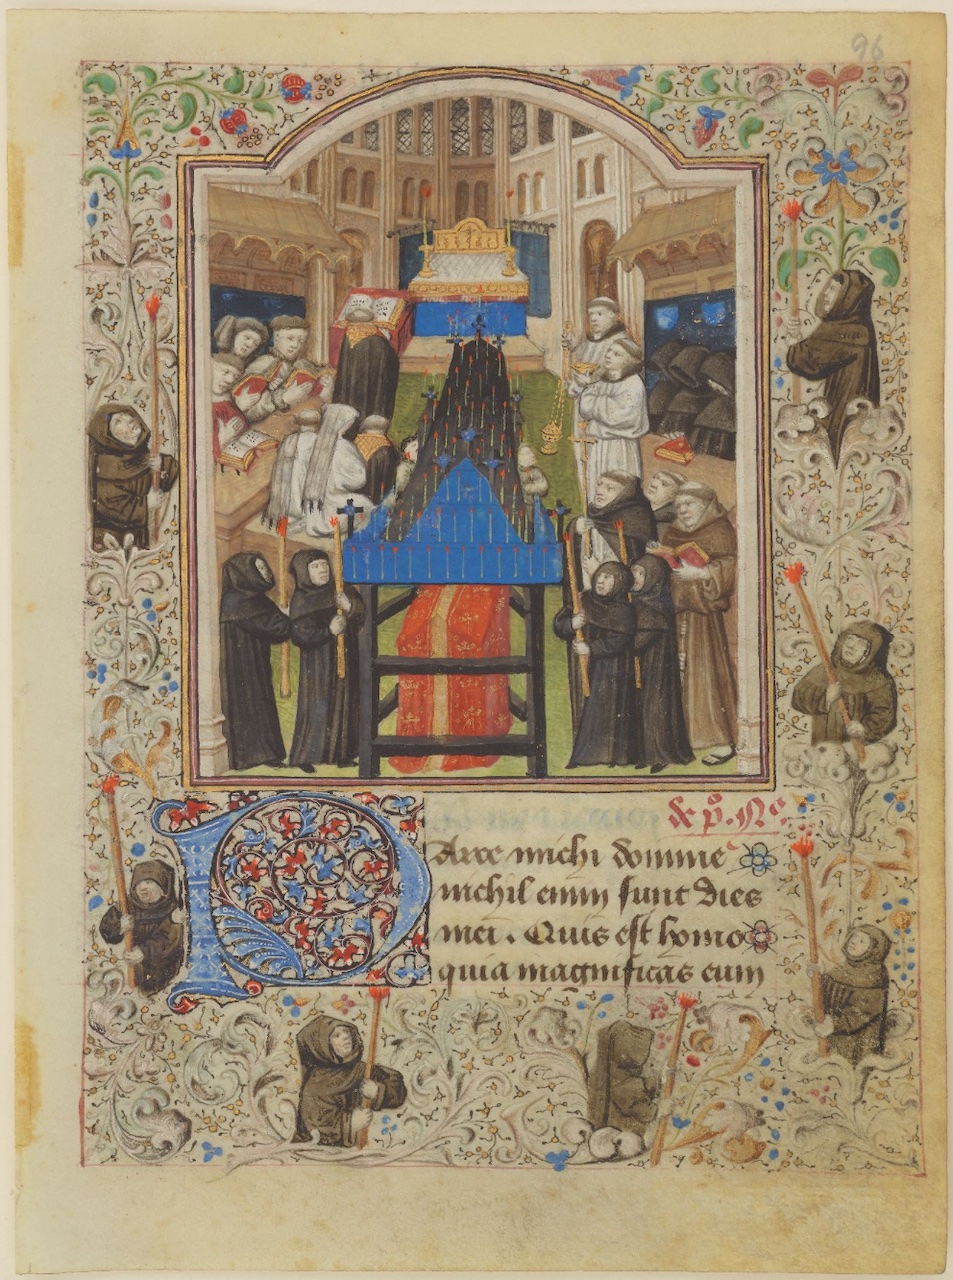 96
& p̄. Nc̄.
Parce michi domine
nichil enim sunt dies
mei. Quis est homo
quia magnificas eum